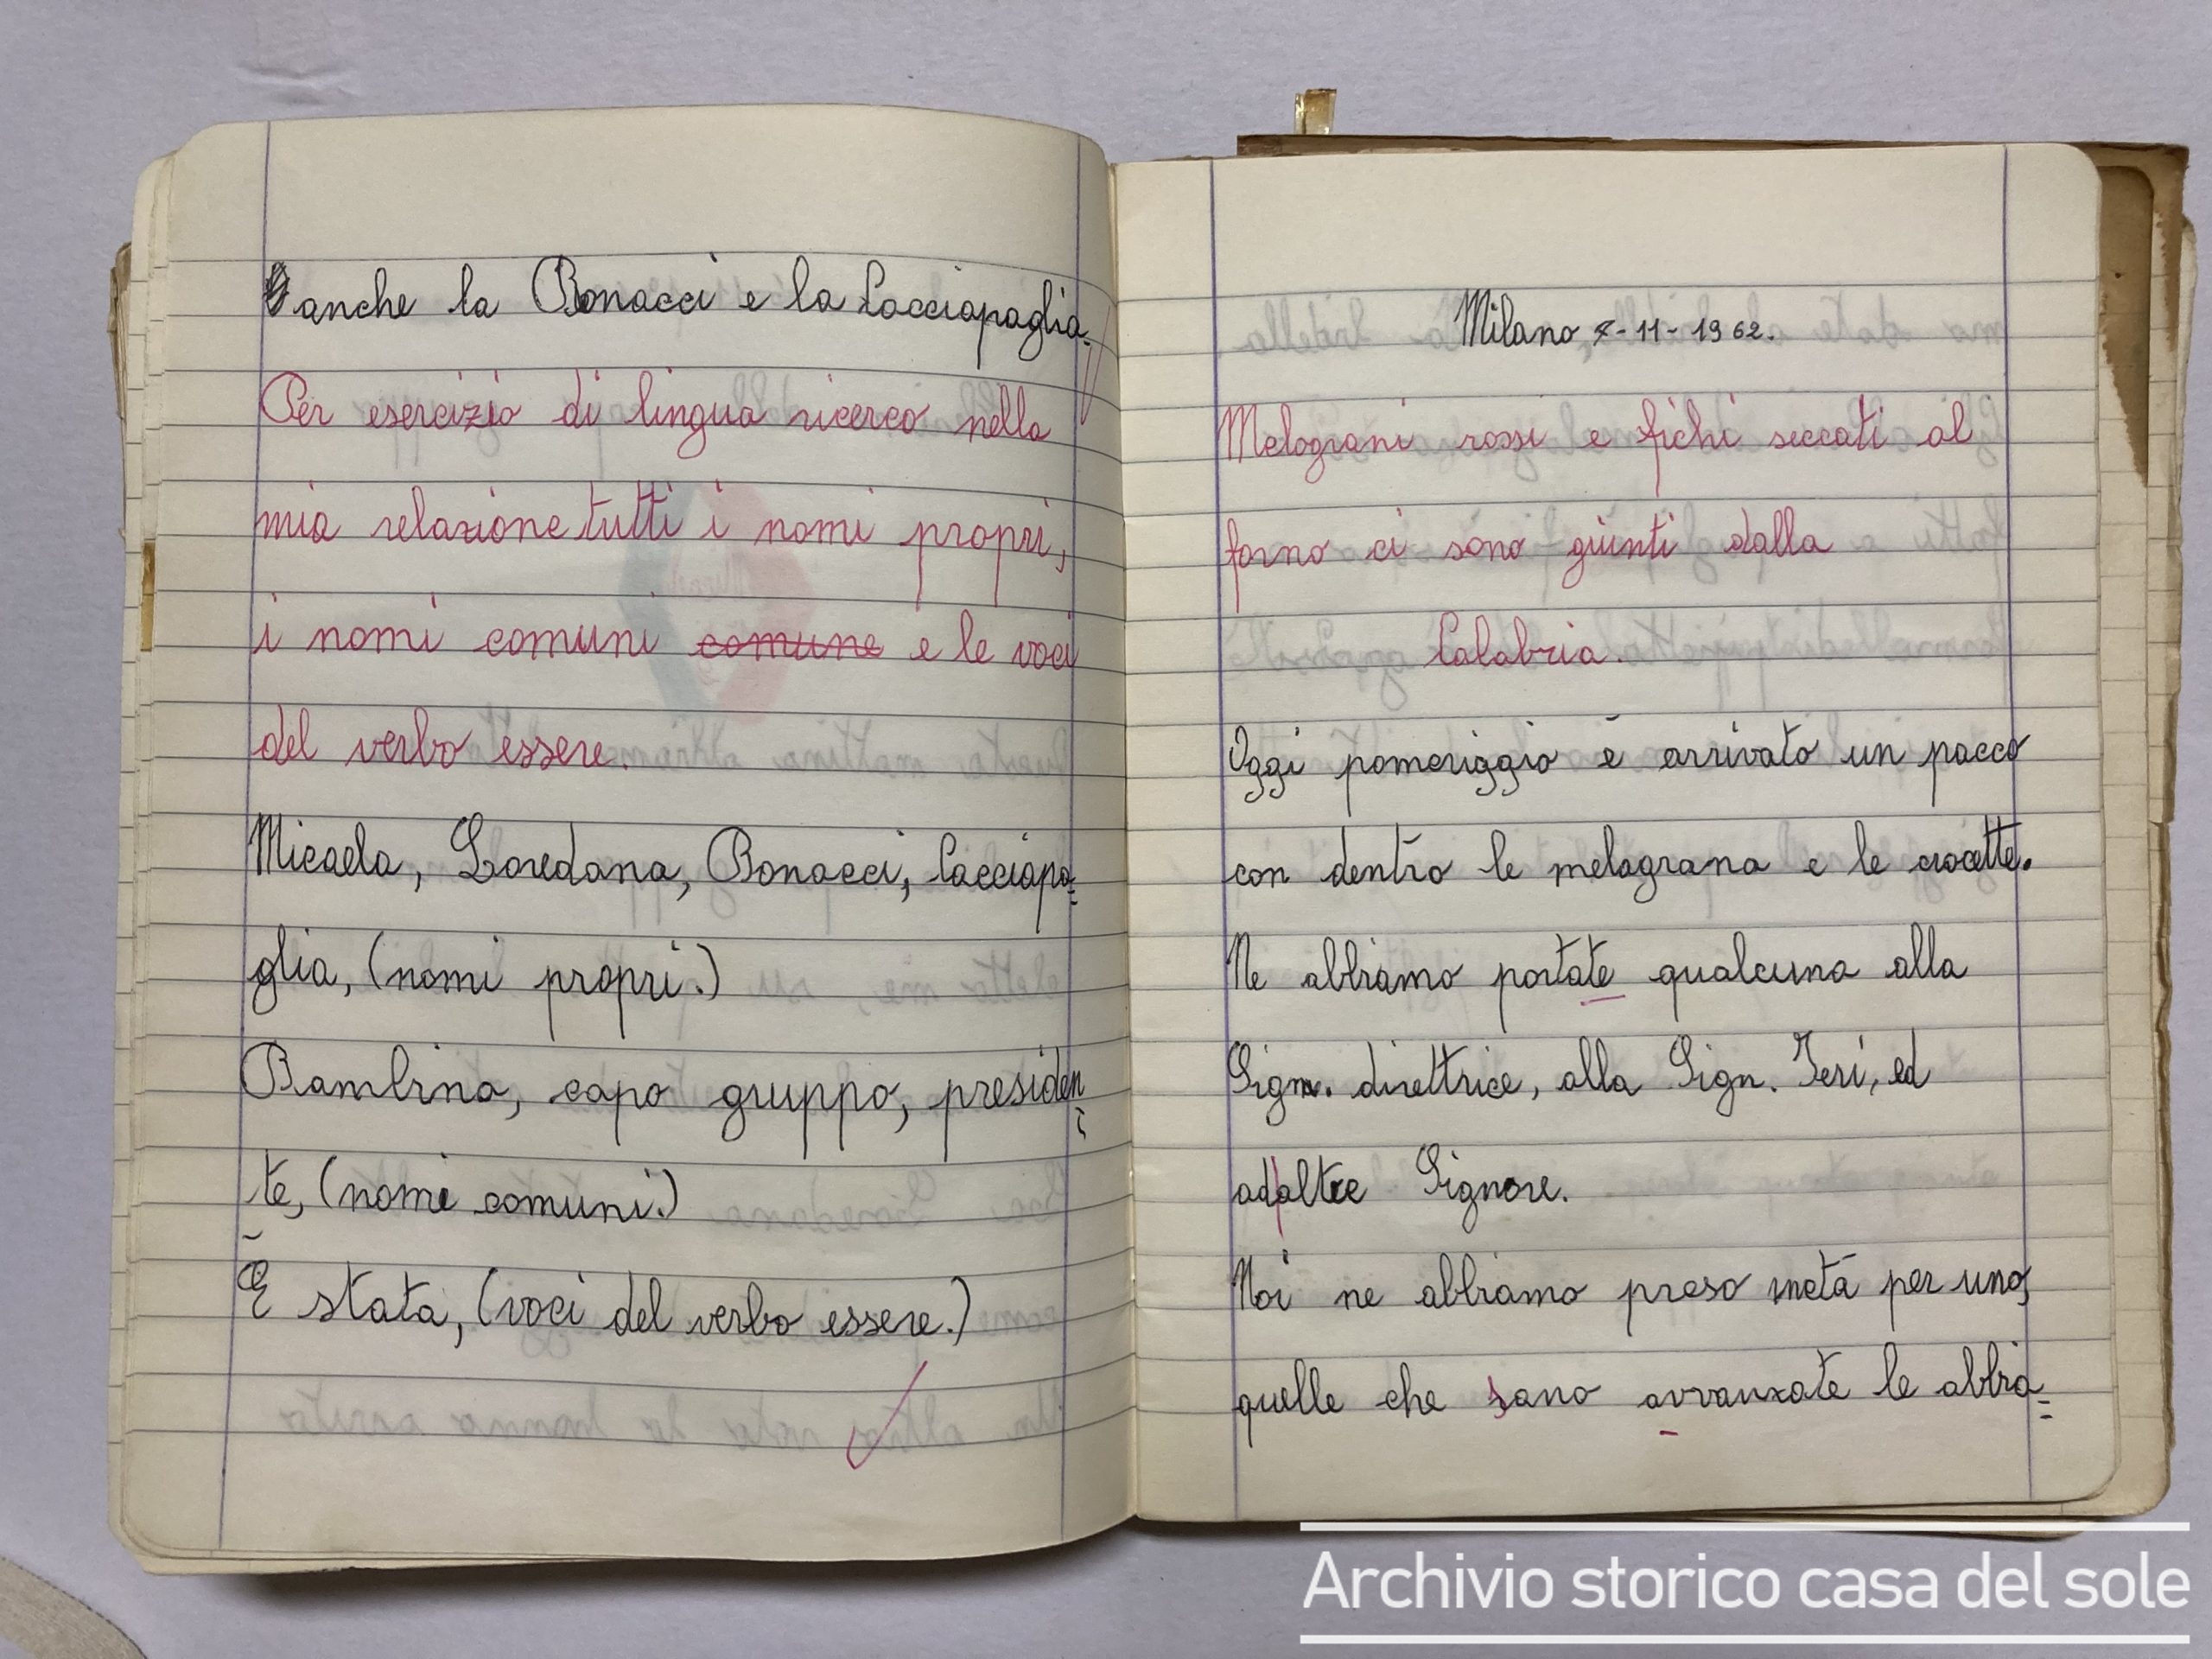 anche la Bonacci e la Cacciapaglia.
Per esercizio di lingua ricerco nella
mia relazione tutti i nomi propri,
i nomi comuni comune e le voci
del verbo essere.
Micaela, Loredana, Bonacci, Cacciapa=
glia, (nomi propri.)
Bambina, capo gruppo, presiden=
te, (nomi comuni.)
È stata, (voci del verbo essere.)
Milano 7-11-1962.
Melograni rossi e fichi seccati al
forno ci sono giunti dalla
Calabria.
Oggi pomeriggio è arrivato un pacco
con dentro le melagrana e le crocette.
Ne abbiamo portate qualcuna alla
Sign. direttrice, alla Sign. Ieri, ed
ad altre Signore.
Noi ne abbiamo preso metà per uno,
quelle che sano avvanzate le abbia=
Archivio storico casa del sole